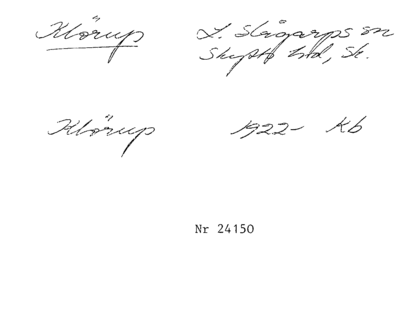 Klörup L. Slågarps sn
Skytts hd, Sk.
Klörup 1922- Kb
Nr 24150